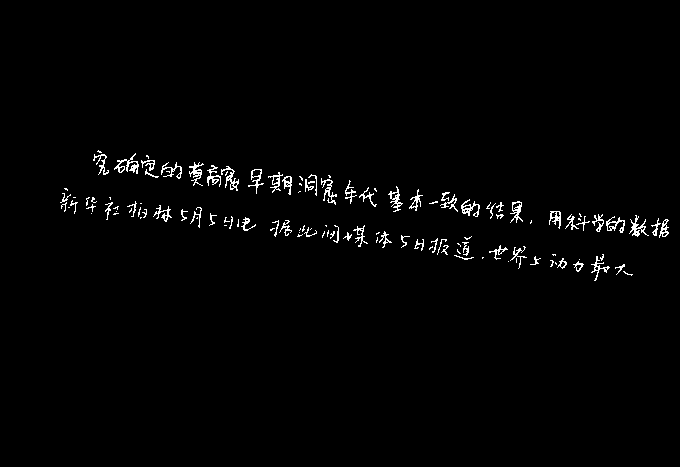 究确定的莫高窟早期洞窟年代基本一致的结果，用科学的数据
新华社柏林5月5日电 据此间媒体5日报道，世界上动力最大